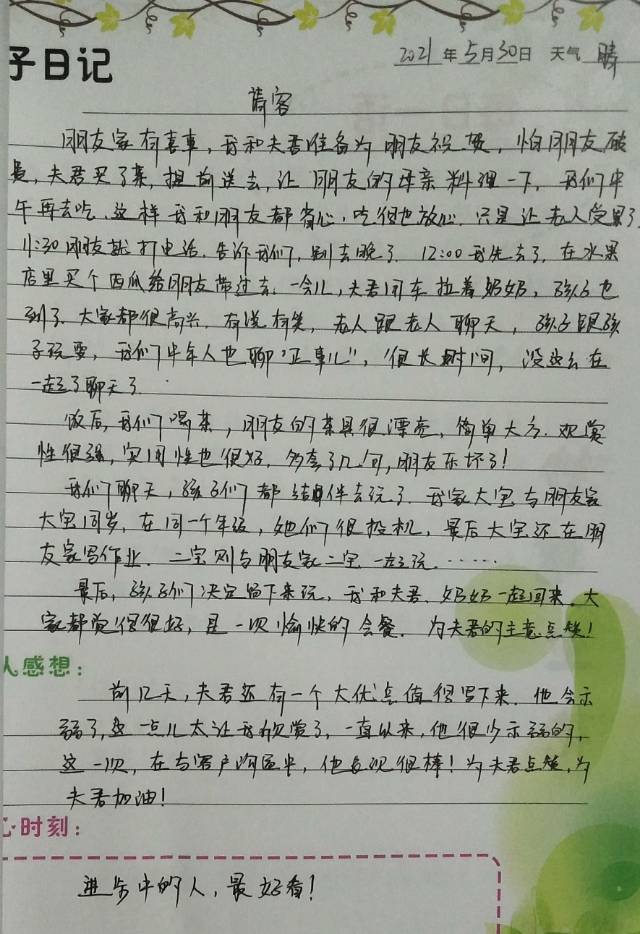 子日记
2021年5月30日 天气 晴
请客
朋友家有喜事，我和夫君准备为朋友祝贺，怕朋友破
费，夫君买了菜，提前送去，让朋友的母亲料理一下，我们中
午再去吃，这样我和朋友都省心，吃得也放心，只是让老人受累了。
11:30朋友就打电话，告诉我们，别去晚了。12:00我先去了，在水果
店里买个西瓜给朋友带过去。一会儿，夫君开车拉着奶奶，孩子也
到了。大家都很高兴。有说有笑，老人跟老人聊天，孩子跟孩
子玩耍，我们中年人也聊“正事儿”，很长时间，没这么在
一起了聊天了。
饭后，我们喝茶，朋友的茶具很漂亮，简单大方，观赏
性很强，实用性也很好，多夸了几句，朋友乐坏了！
我们聊天，孩子们都结伴去玩了。我家大宝与朋友家
大宝同岁，在同一个年级，她们很投机，最后大宝还在朋
友家写作业。二宝则与朋友家二宝一起玩。……
最后，孩子们决定留下来玩，我和夫君、奶奶一起回来。大
家都觉得很好，是一次愉快的会餐。为夫君的主意点赞！
人感想：
前几天，夫君还有一个大优点值得写下来。他会示
弱了，这一点儿太让我欣赏了，一直以来，他很少示弱的，
这一次，在与客户沟通中，他表现很棒！为夫君点赞，为
夫君加油！
心时刻：
进步中的人，最好看！